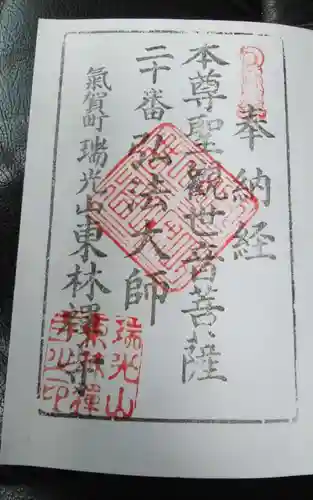 奉納経
本尊聖観世音菩薩
二十番弘法大師
氣賀町瑞光山東林禪寺
瑞光山
東林禪
寺之印